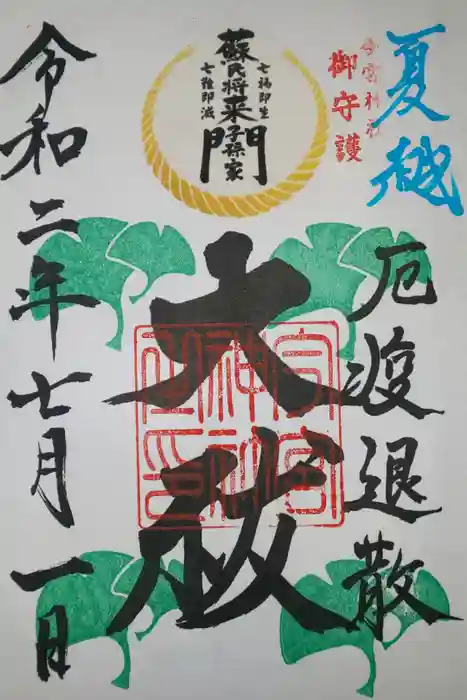 夏越
今宮神社
御守護
厄渡退散
蘇民将来子孫家門
七福即生
七難即滅
大祓
令和二年七月一日